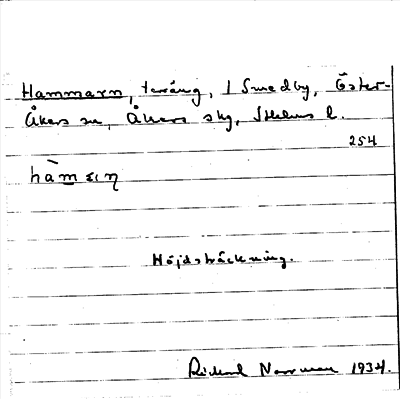 Hammarn, terräng, i Smedby, Öster-
Åkers sn, Åkers skg, Sthlms l.
254
Höjdsträckning.
Rickard Norrman 1934.